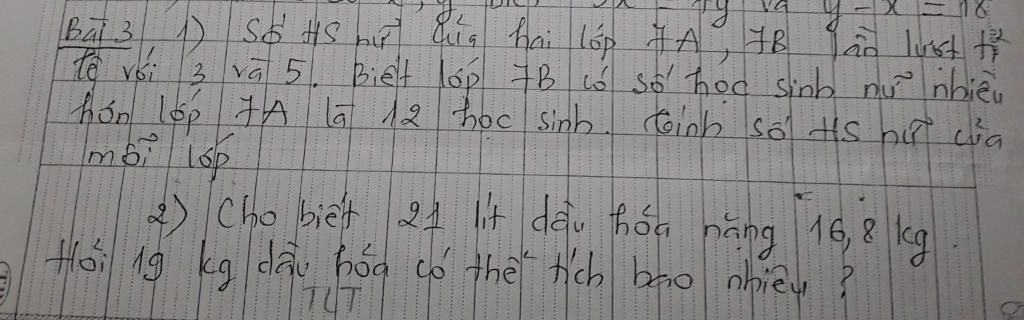 3x = 4y và y - x = 18
Bài 3 1) Số HS nữ của hai lớp 7A, 7B lần lượt tỉ
lệ với 3 và 5. Biết lớp 7B có số học sinh nữ nhiều
hơn lớp 7A là 12 học sinh. Tính số HS nữ của
mỗi lớp
2) Cho biết 21 lít dầu hỏa nặng 16,8 kg.
Hỏi 19 kg dầu hỏa có thể tích bao nhiêu?
TLT